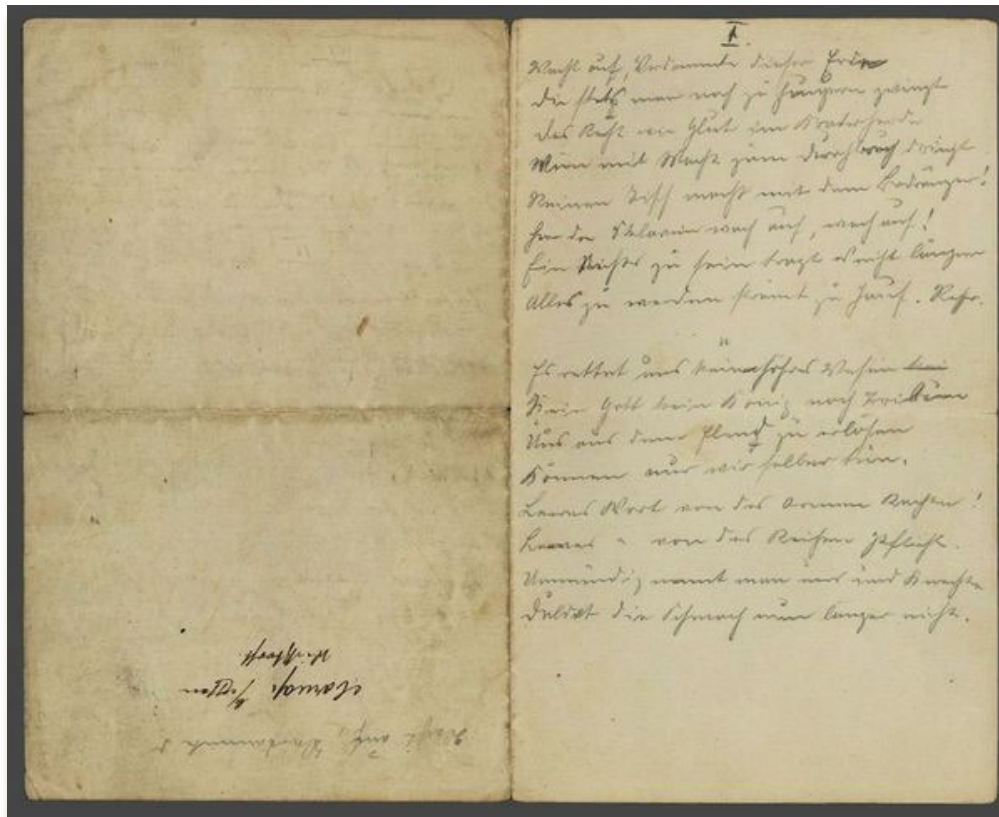 I.
Wacht auf, Verdammte dieser Erde
die stets man noch zu hungern zwingt
das Recht wie Glut im Kraterherde
Nun mit Macht zum durchbruch dringt
Reinen Tisch macht mit dem Bedränger!
Heer der Sklaven wach auf, wach auf!
Ein Nichts zu sein tragt es nicht länger
Alles zu werden strömt zu Hauf. Refr.
II
Es rettet uns kein höhres Wesen
Kein Gott kein König noch Tribun
Uns aus dem Elend zu erlösen
Können nur wir selber tun.
Leeres Wort von des Armen Rechten!
Leeres " von des Reichen Pflicht.
Unmündig nennt man uns und Knechte
Duldet die Schmach nun länger nicht.
Wacht auf, Verdammte d